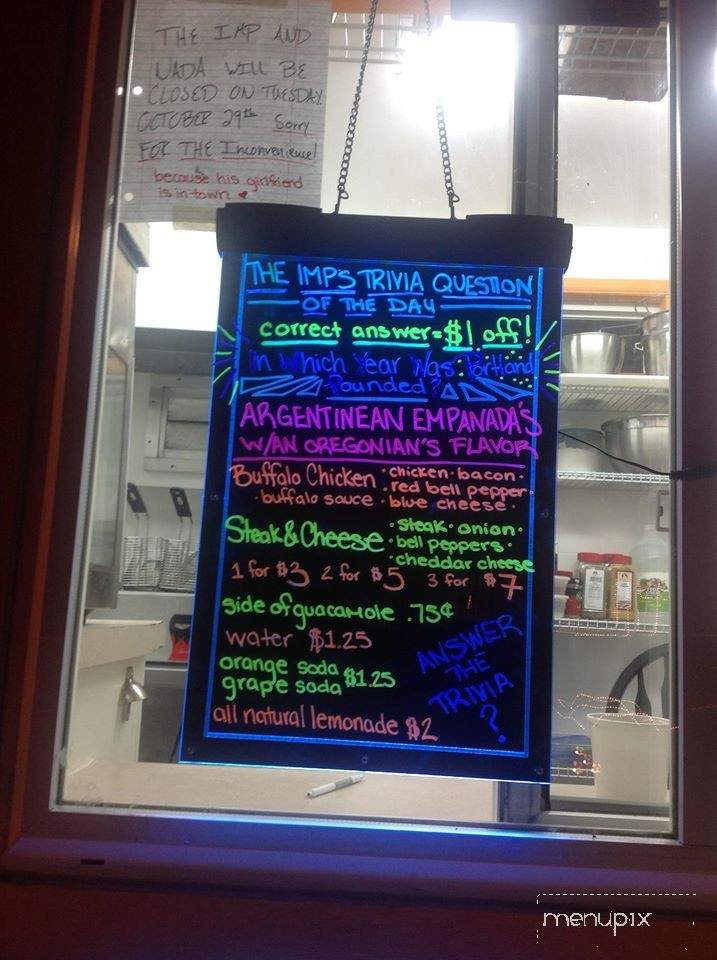 THE IMP AND
NADA WILL BE
CLOSED ON TUESDAY
OCTOBER 29th Sorry
FOR THE Inconvenience!
because his girlfriend
is in town ♥
THE IMP'S TRIVIA QUESTION
OF THE DAY
correct answer = $1 off!
In Which Year Was Portland
Founded?
ARGENTINEAN EMPANADA'S
W/AN OREGONIAN'S FLAVOR
Buffalo Chicken • chicken • bacon •
• red bell pepper •
• buffalo sauce • blue cheese •
Steak & Cheese • steak • onion •
• bell peppers •
• cheddar cheese
1 for $3 2 for $5 3 for $7
side of guacamole .75¢
water $1.25
orange soda
grape soda $1.25
all natural lemonade $2
ANSWER
THE
TRIVIA
?
menupix